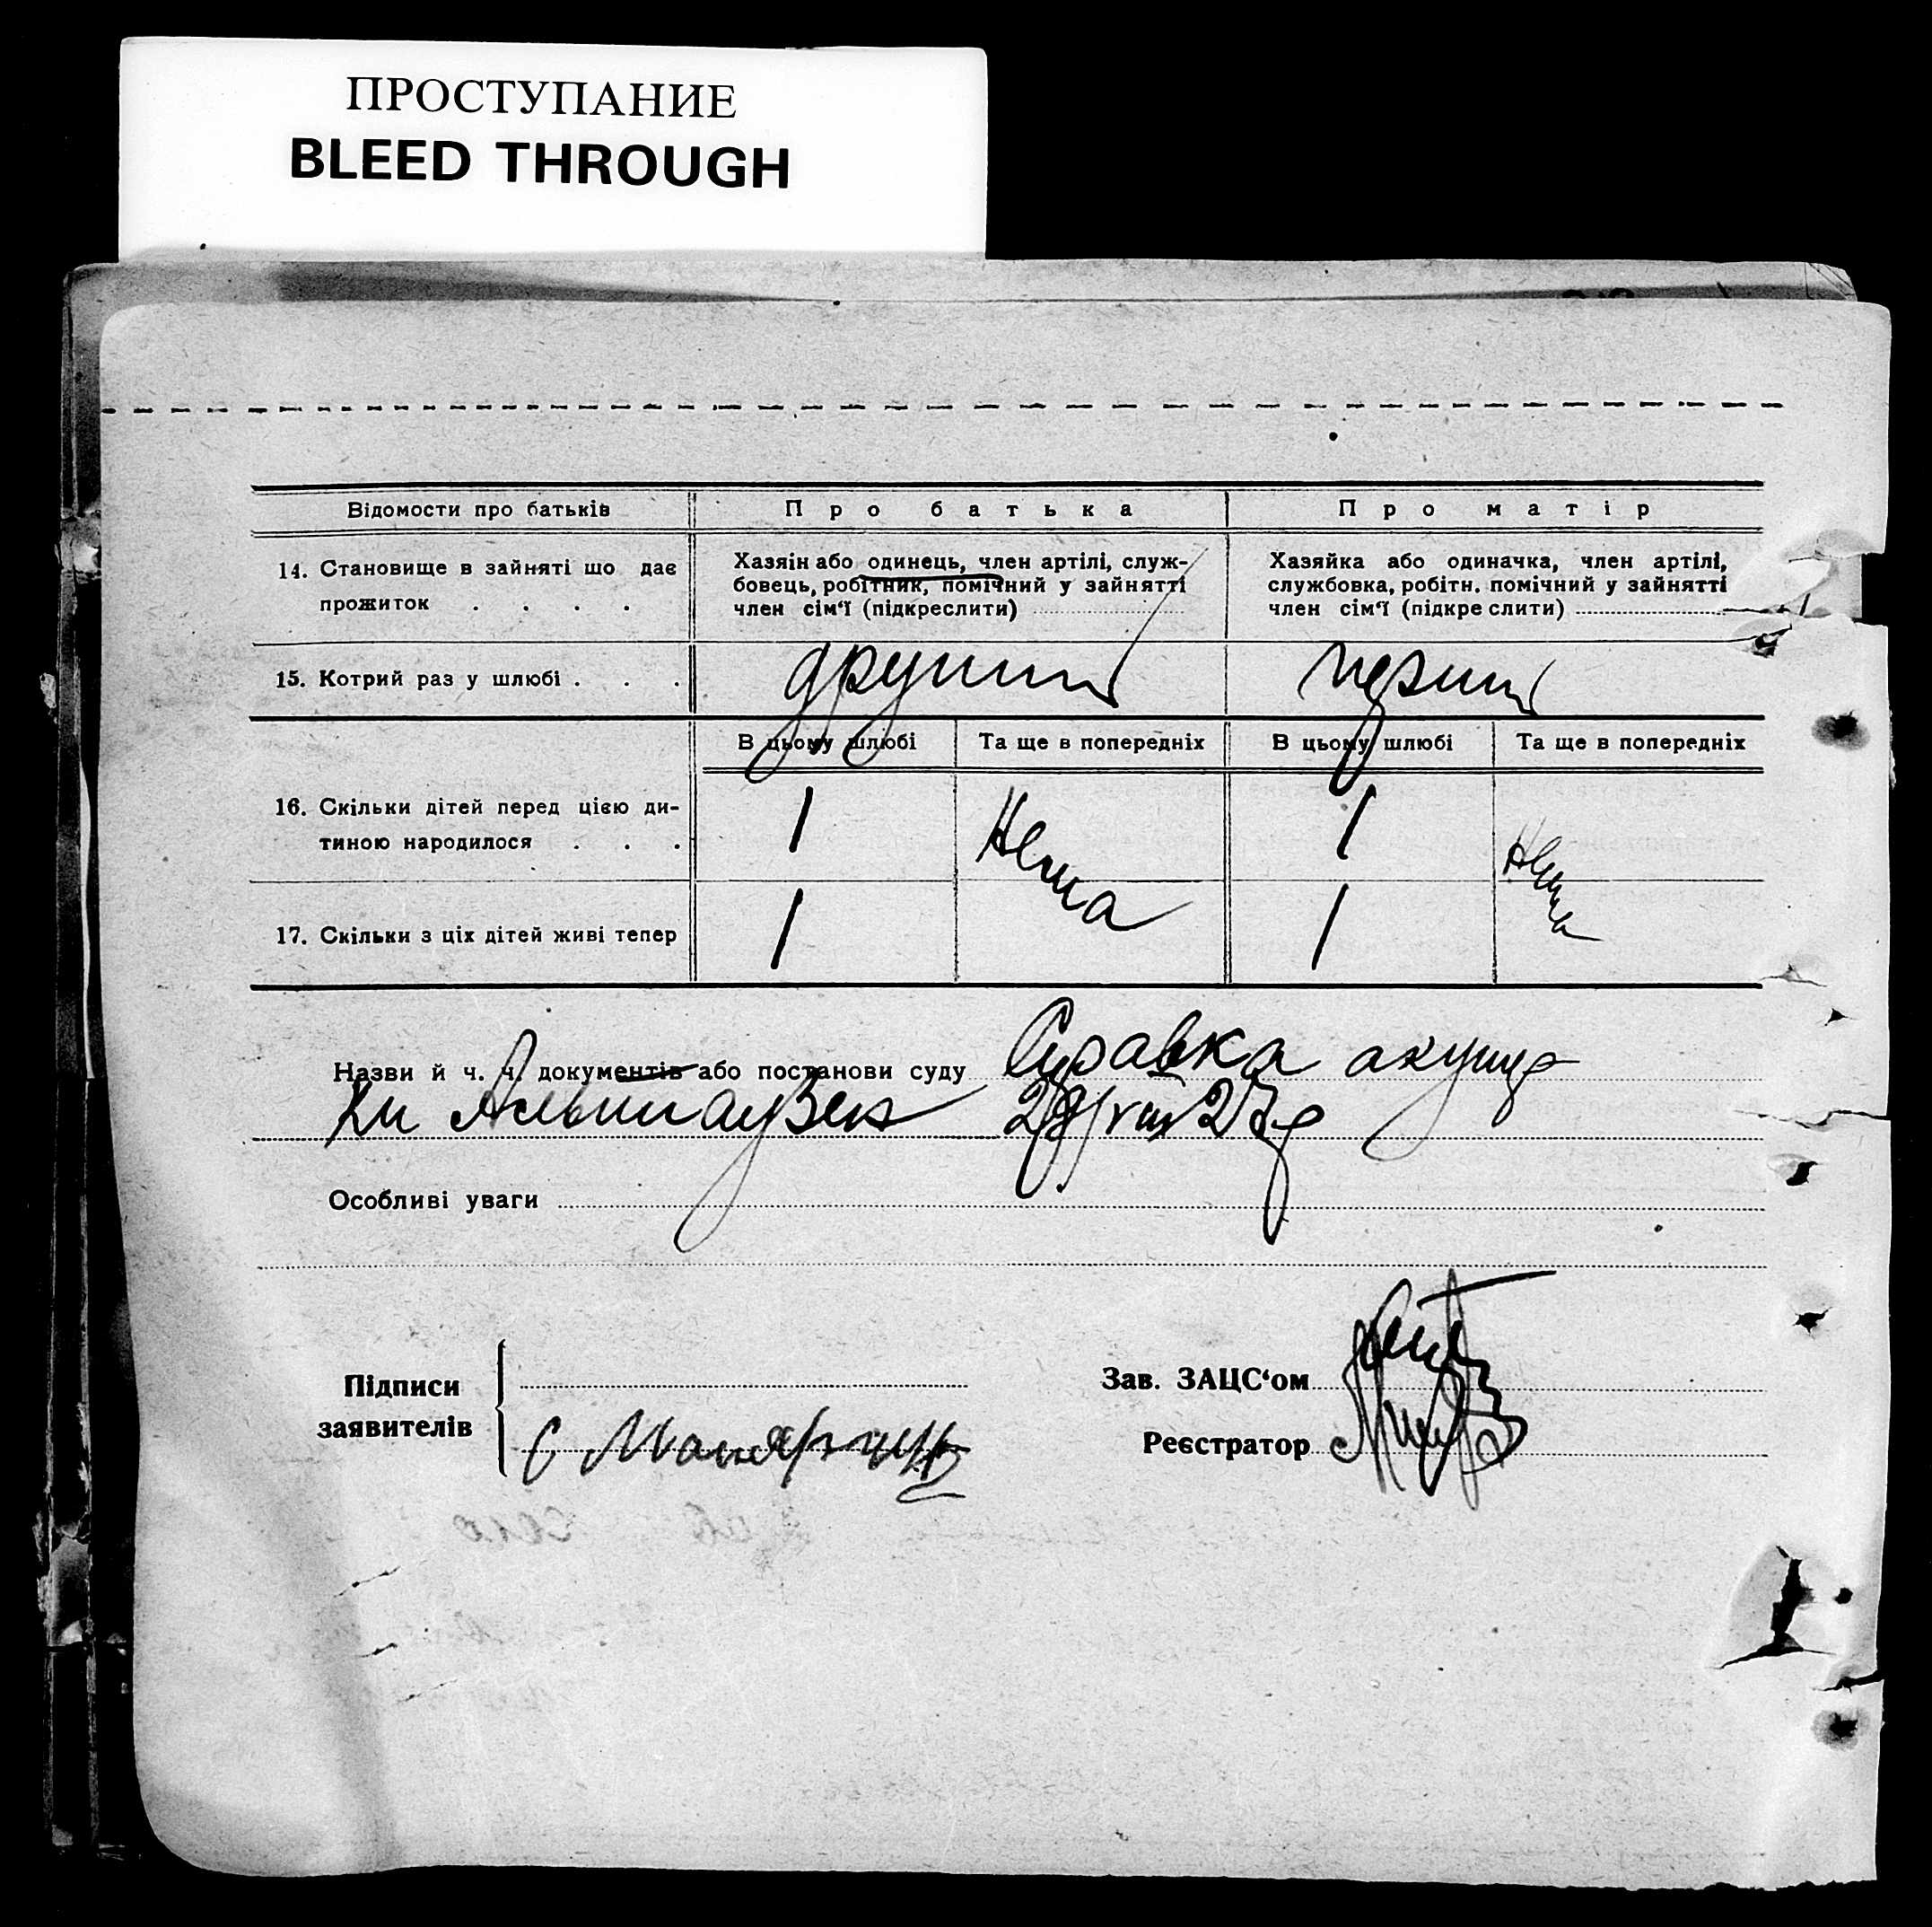 ПРОСТУПАНИЕ
BLEED THROUGH
Відомости про батьків
Про батька
Про матір
14. Становище в зайняті що дає
прожиток . . . .
Хазяін або одинець, член артілі, служ-
бовець, робітник, помічний у зайнятті
член сім‘ї (підкреслити)
Хазяйка або одиначка, член артілі,
службовка, робітн. помічний у зайнятті
член сім‘ї (підкреслити)
15. Котрий раз у шлюбі . . .
другий
перший
В цьому шлюбі
Та ще в попередніх
В цьому шлюбі
Та ще в попередніх
16. Скільки дітей перед цією ди-
тиною народилося . . .
1
Нема
1
Нема
17. Скільки з ціх дітей живі тепер
1
1
Назви й ч. ч. документів або постанови суду Справка акушер
ки
Особливі уваги
Підписи
заявителів
Зав. ЗАЦС‘ом
Реєстратор